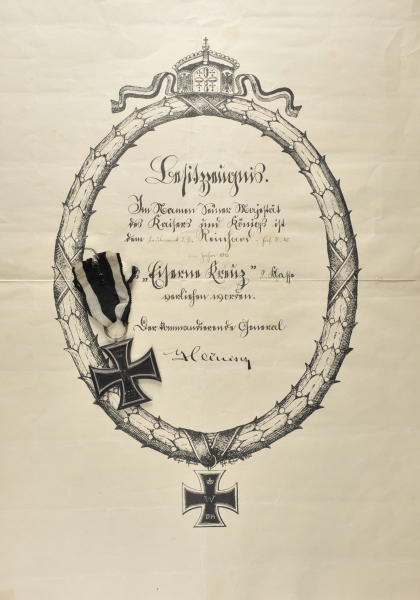 Besitzeugnis.
Im Namen Seiner Majestät
des Kaisers und Königs ist
dem Reinhard
das „Eiserne Kreuz" 2. Klasse
verliehen worden.
Der kommandierende General
W
1914